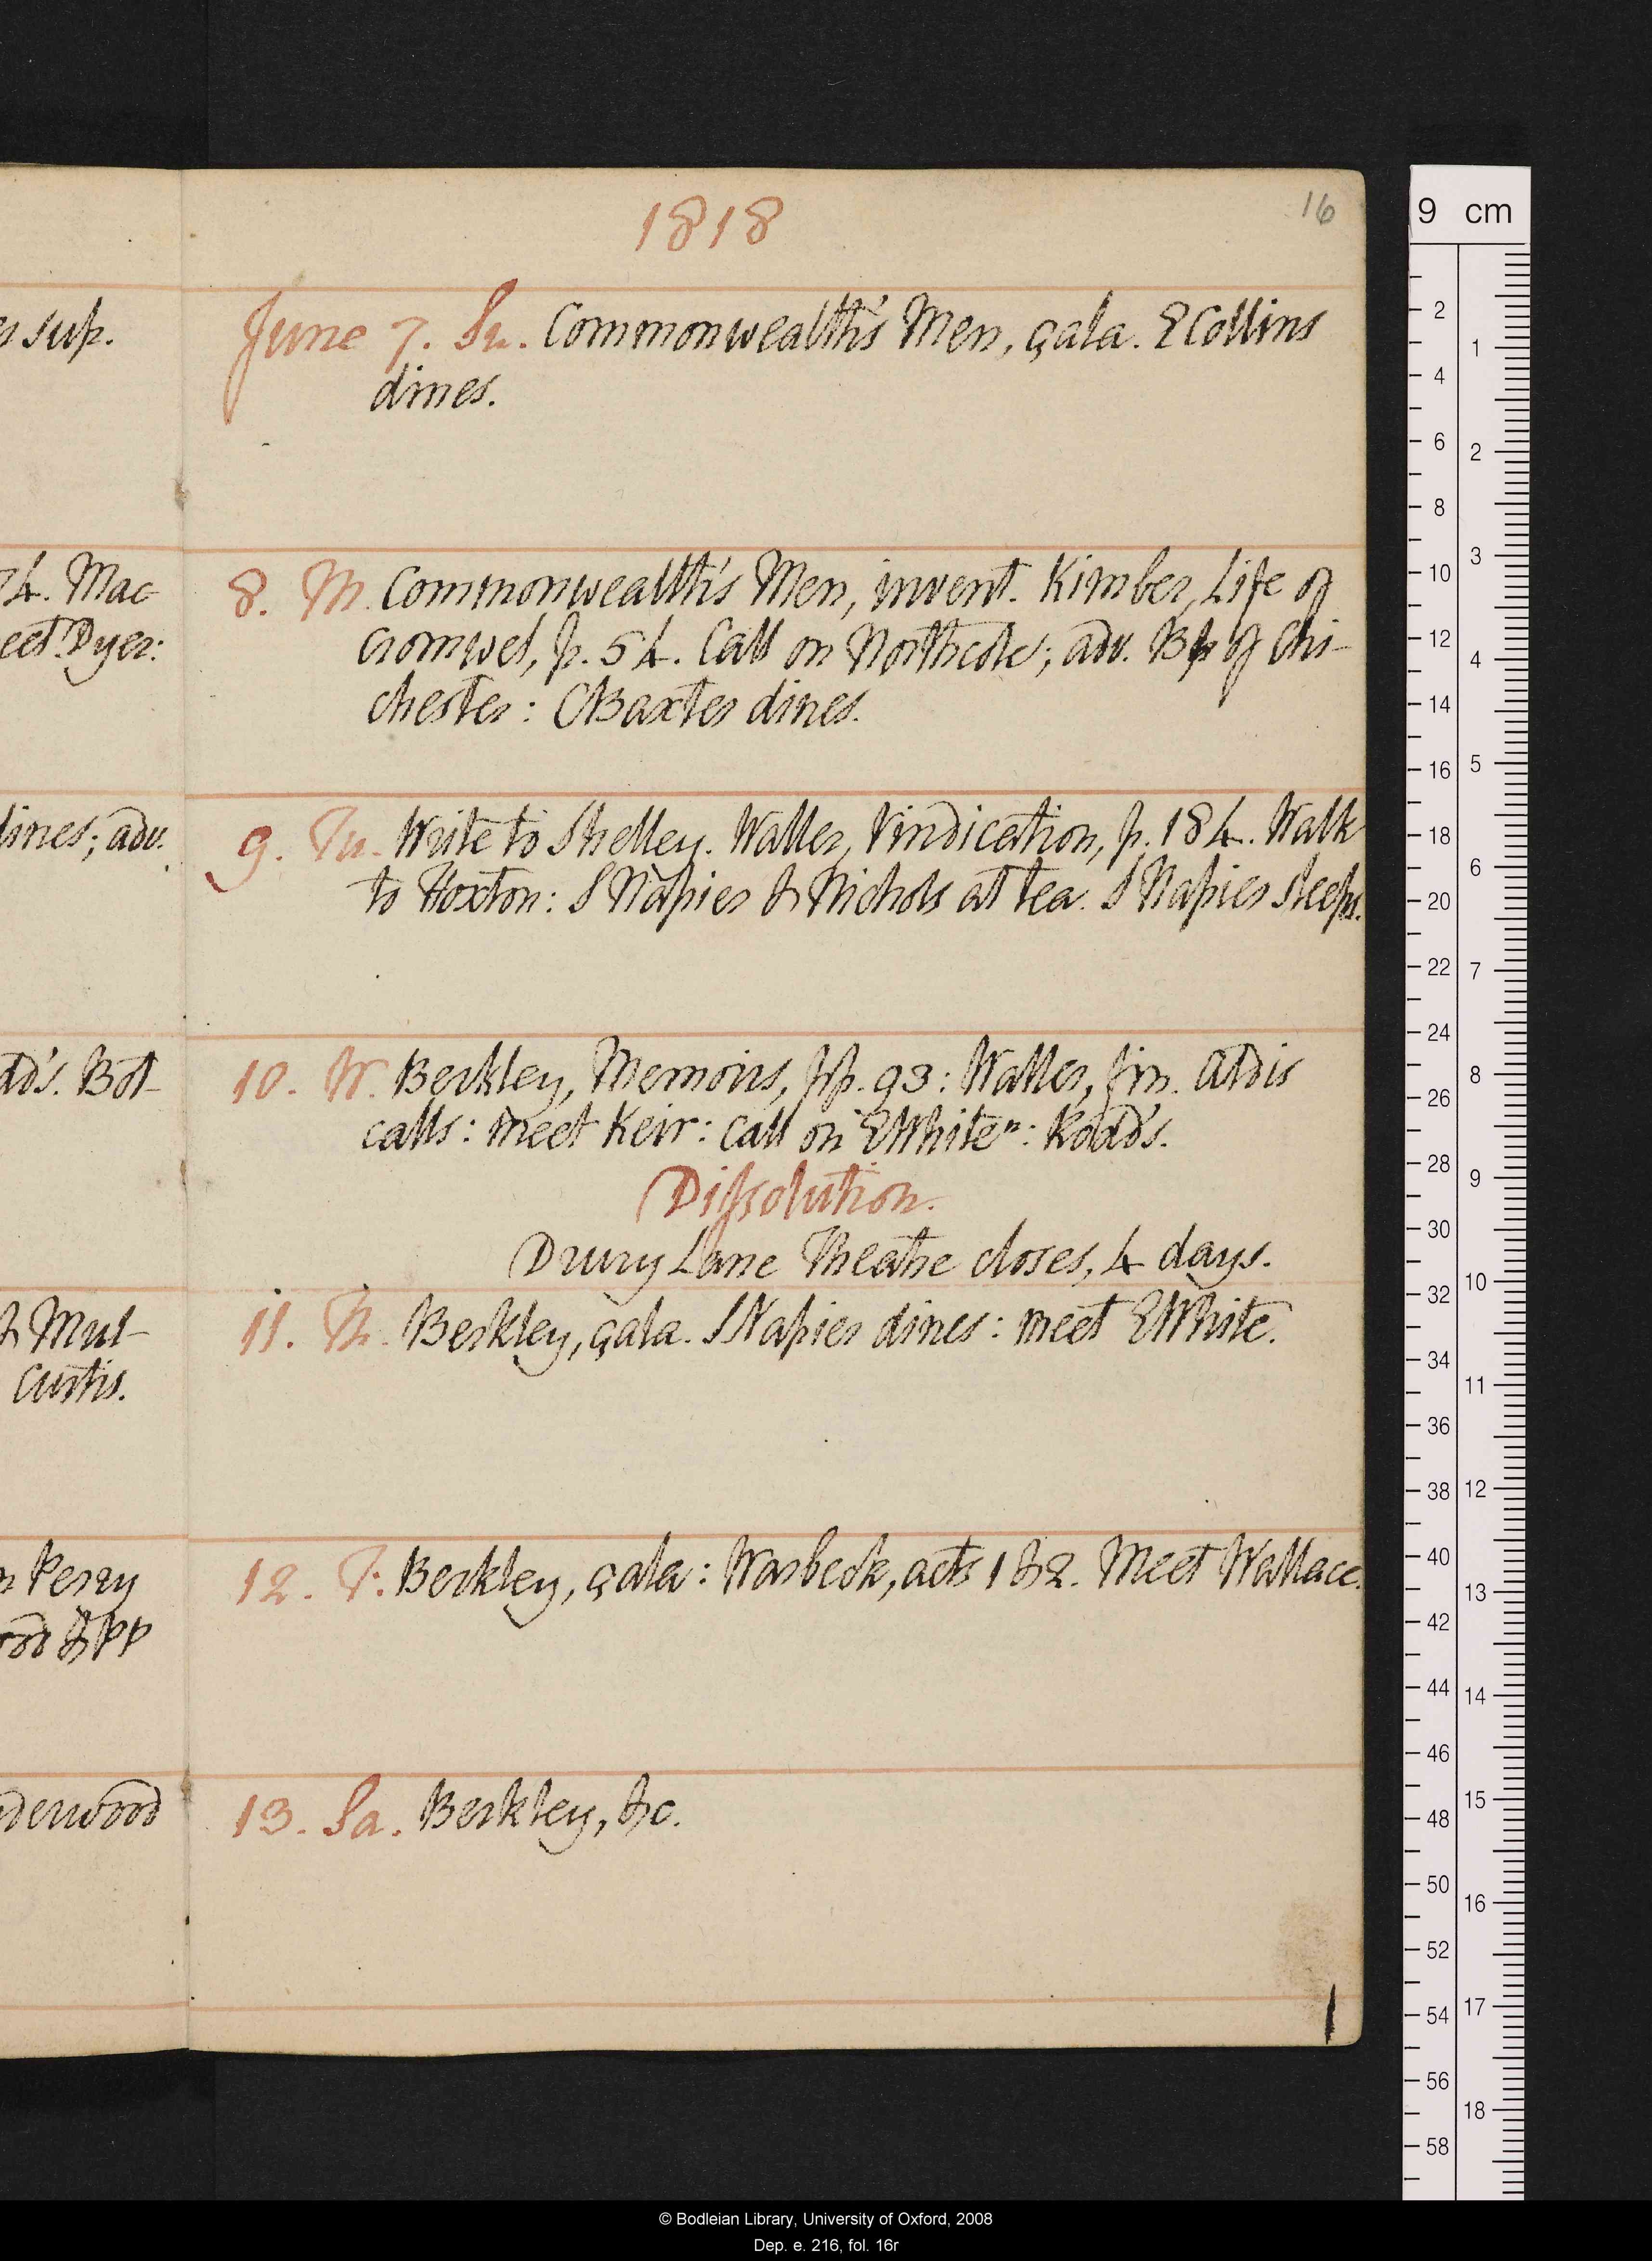 1818
16
June 7. Su. Commonwealth's Men, çala. E Collins
dines.
8. M. Commonwealth's Men, invent. Kimber, Life of
Cromwel, p. 54. Call on Northcote; adv. Bp of Chi-
chester: C Baxter dines.
9. Tu. Write to Shelley. Waller, Vindication, p. 184. Walk
to Hoxton: S Napier & Nichols at tea. S Napier sleeps.
10. W. Berkley, Memoirs, pp. 93: Waller, fin. Aldis
calls: meet Keir: call on E White n: Rodd's.
Dissolution.
Drury Lane Theatre closes, 4 days.
11. Th. Berkley, çala. S Napier dines: meet E White.
12. F. Berkley, çala: Warbeck, acts 1 & 2. Meet Wallace.
13. Sa. Berkley, &c.
sup.
74. Mac-
eet Dyer:
dines; adv.
dd's. Bot-
& Mul-
Curtis.
Perry
& PP
derwood
9 cm
2
4
6
8
10
12
14
16
18
20
22
24
26
28
30
32
34
36
38
40
42
44
46
48
50
52
54
56
58
1
2
3
4
5
6
7
8
9
10
11
12
13
14
15
16
17
18
© Bodleian Library, University of Oxford, 2008
Dep. e. 216, fol. 16r